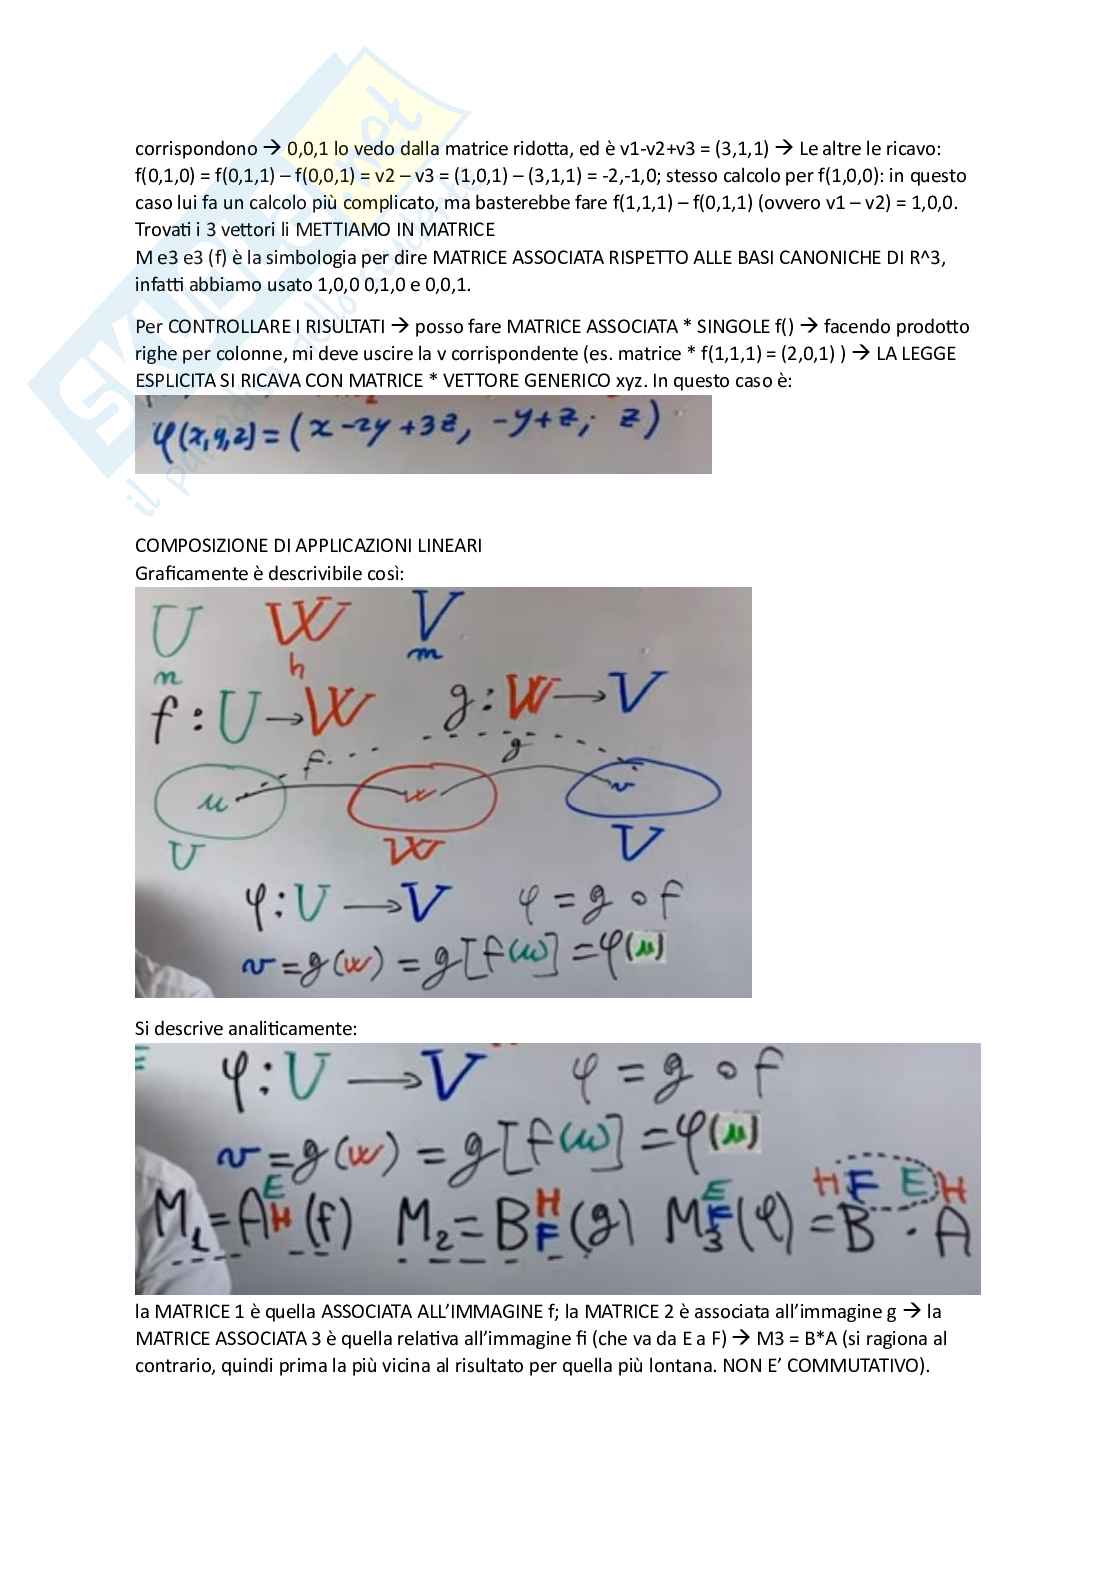 corrispondono → 0,0,1 lo vedo dalla matrice ridotta, ed è v1-v2+v3 = (3,1,1) → Le altre le ricavo:
f(0,1,0) = f(0,1,1) – f(0,0,1) = v2 – v3 = (1,0,1) – (3,1,1) = -2,-1,0; stesso calcolo per f(1,0,0): in questo
caso lui fa un calcolo più complicato, ma basterebbe fare f(1,1,1) – f(0,1,1) (ovvero v1 – v2) = 1,0,0.
Trovati i 3 vettori li METTIAMO IN MATRICE
M e3 e3 (f) è la simbologia per dire MATRICE ASSOCIATA RISPETTO ALLE BASI CANONICHE DI R^3,
infatti abbiamo usato 1,0,0 0,1,0 e 0,0,1.
Per CONTROLLARE I RISULTATI → posso fare MATRICE ASSOCIATA * SINGOLE f() → facendo prodotto
righe per colonne, mi deve uscire la v corrispondente (es. matrice * f(1,1,1) = (2,0,1) ) → LA LEGGE
ESPLICITA SI RICAVA CON MATRICE * VETTORE GENERICO xyz. In questo caso è:
φ(x,y,z) = (x-2y+3z, -y+z; z)
COMPOSIZIONE DI APPLICAZIONI LINEARI
Graficamente è descrivibile così:
U W V
n h m
f : U → W g : W → V
f g
u w v
U W V
φ : U → V φ = g ∘ f
v = g(w) = g[f(u)] = φ(u)
Si descrive analiticamente:
φ : U → V φ = g ∘ f
v = g(w) = g[f(u)] = φ(u)
H F E H
M1 = A E H (f) M2 = B H F (g) M3 E F (φ) = B · A
la MATRICE 1 è quella ASSOCIATA ALL'IMMAGINE f; la MATRICE 2 è associata all'immagine g → la
MATRICE ASSOCIATA 3 è quella relativa all'immagine fi (che va da E a F) → M3 = B*A (si ragiona al
contrario, quindi prima la più vicina al risultato per quella più lontana. NON E' COMMUTATIVO).